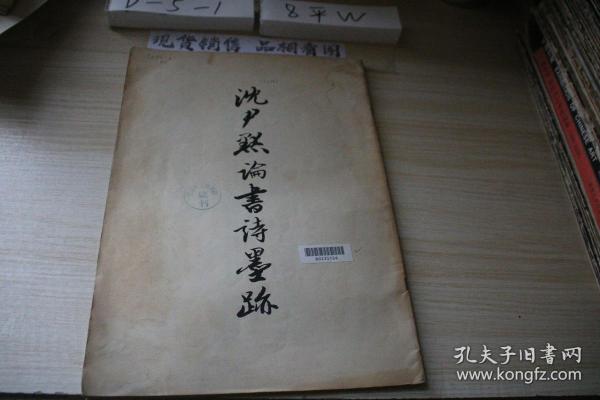 D-5-1
8平W
现货销售 品相看图
沈尹默论書诗墨跡
孔夫子旧書网
www.kongfz.com